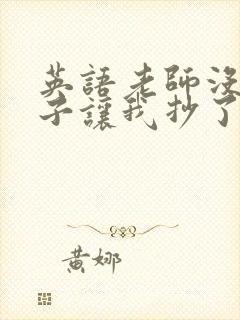 英語老師沒
子讓我抄了
黃娜